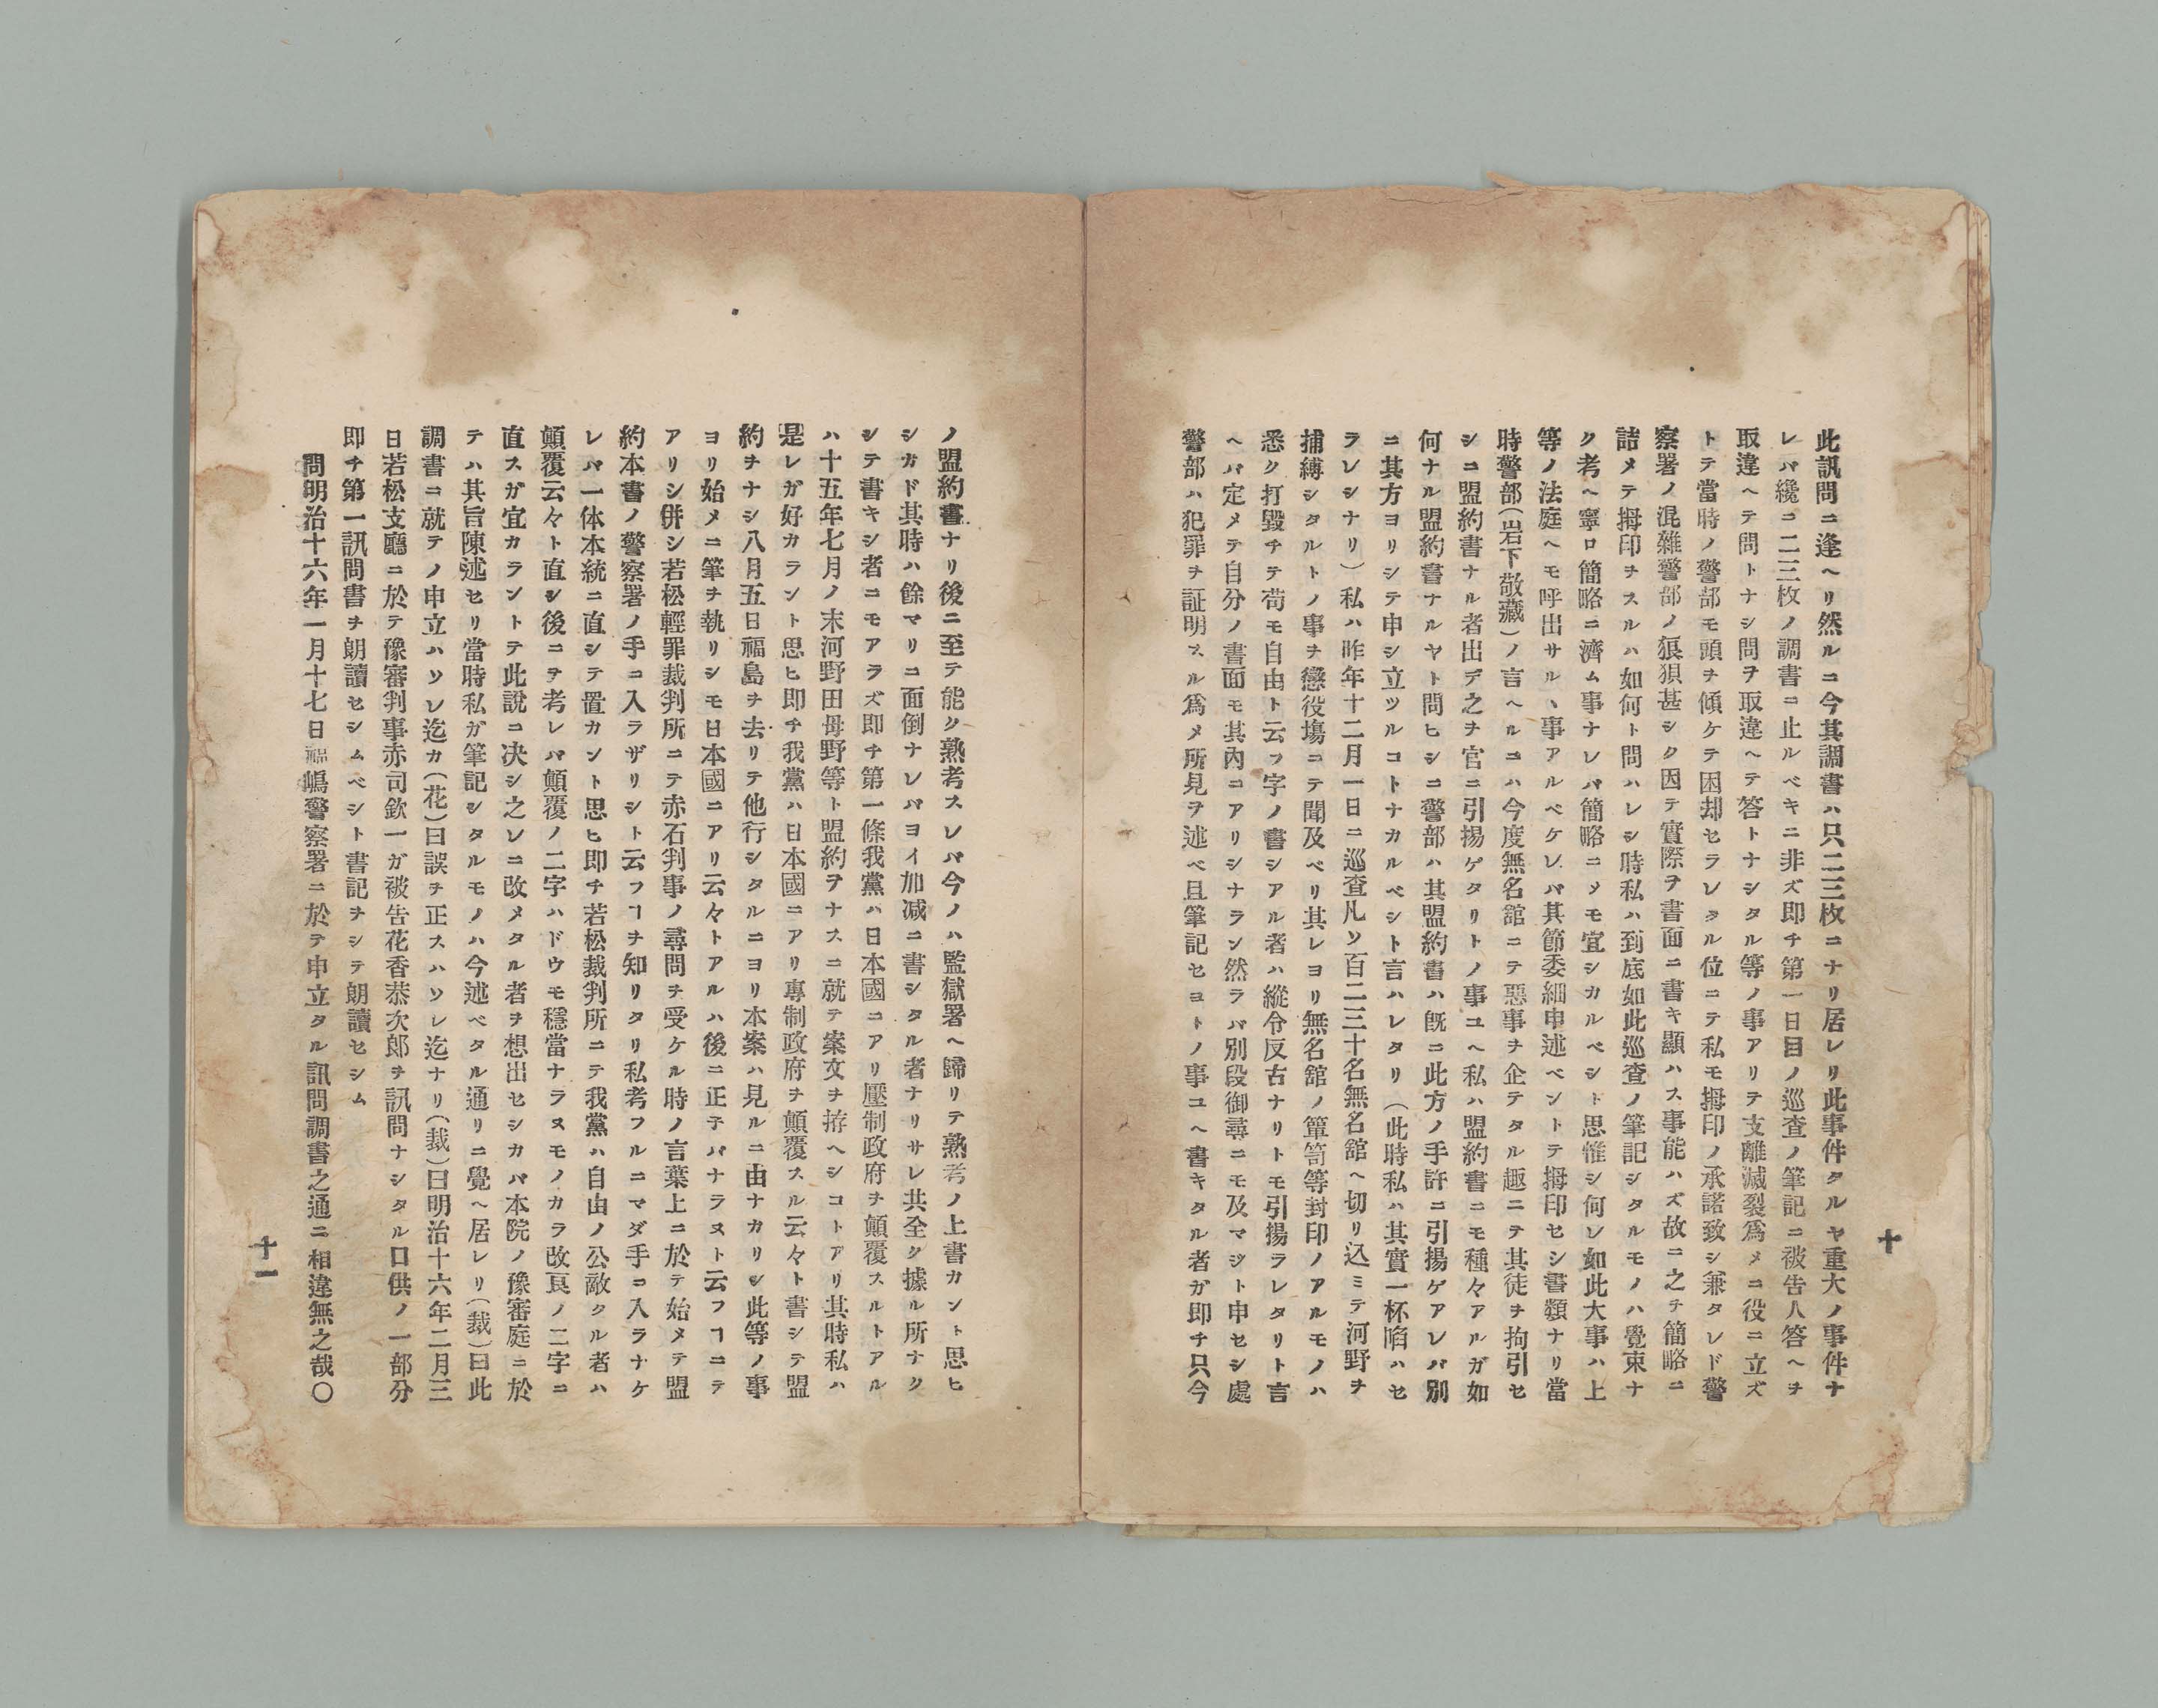 十
此訊問ニ逢ヘリ然ルニ今其調書ハ只二三枚ニナリ居レリ此事件タルヤ重大ノ事件ナ
レバ纔ニ二三枚ノ調書ニ止ルベキニ非ズ即チ第一日目ノ巡査ノ筆記ニ被告人答ヘヲ
取違ヘテ問トナシ問ヲ取違ヘテ答トナシタル等ノ事アリテ支離滅裂爲メニ役ニ立ズ
トテ當時ノ警部モ頭ヲ傾ケテ困却セラレタル位ニテ私モ拇印ノ承諾致シ兼タレド警
察署ノ混雜警部ノ狼狽甚シク因テ實際ヲ書面ニ書キ顯ハス事能ハズ故ニ之チ簡略ニ
詰メテ拇印チスルハ如何ト問ハレシ時私ハ到底如此巡査ノ筆記シタルモノハ覺束ナ
ク考ヘ寧ロ簡略ニ濟ム事ナレバ簡略ニメモ宜シカルベシト思惟シ何ソ如此大事ハ上
等ノ法庭ヘモ呼出サルヽ事アルベケレバ其節委細申述ベントテ拇印セシ書類ナリ當
時警部(岩下敬藏)ノ言ヘルニハ今度無名舘ニテ惡事チ企テタル趣ニテ其徒チ拘引セ
シニ盟約書ナル者出デ之ヲ官ニ引揚ゲタリトノ事ユヘ私ハ盟約書ニモ種々アルガ如
何ナル盟約書ナルヤト問ヒシニ警部ハ其盟約書ハ既ニ此方ノ手許ニ引揚ゲアレバ別
ニ其方ヨリシテ申シ立ツルコトナカルベシト言ハレタリ(此時私ハ其實一杯陷ハセ
ラレシナリ)私ハ昨年十二月一日ニ巡査凡ソ百二三十名無名舘ヘ切リ込ミテ河野ヲ
捕縛シタルトノ事チ懲役塲ニテ聞及ベリ其レヨリ無名舘ノ簞笥等封印ノアルモノハ
悉ク打毀チテ苟モ自由ト云フ字ノ書シアル者ハ縱令反古ナリトモ引揚ラレタリト言
ヘバ定メテ自分ノ書面モ其內ニアリシナラン然ラバ別段御尋ニモ及マジト申セシ處
警部ハ犯罪ヲ証明スル爲メ所見ヲ述ベ且筆記セヨトノ事ユヘ書キタル者ガ即チ只今
ノ盟約書ナリ後ニ至テ能ク熟考スレバ今ノハ監獄署ヘ歸リテ熟考ノ上書カント思ヒ
シガド其時ハ餘マリニ面倒ナレバヨイ加減ニ書シタル者ナリサレ共全ク據ル所ナク
シテ書キシ者ニモアラズ即チ第一條我黨ハ日本國ニアリ壓制政府ヲ顛覆スルトアル
ハ十五年七月ノ末河野田母野等ト盟約ヲナスニ就テ案文チ拵ヘシコトアリ其時私ハ
是レガ好カラント思ヒ即チ我黨ハ日本國ニアリ專制政府チ顛覆スル云々ト書シテ盟
約チナシ八月五日福島ヲ去リテ他行シタルニヨリ本案ハ見ルニ由ナカリシ此等ノ事
ヨリ始メニ筆チ執リシモ日本國ニアリ云々トアルハ後ニ正子バナラヌト云フヿニテ
アリシ併シ若松輕罪裁判所ニテ赤石判事ノ尋問チ受ケル時ノ言葉上ニ於テ始メテ盟
約本書ノ警察署ノ手ニ入ラザリシト云フヿチ知リタリ私考フルニマダ手ニ入ラナケ
レバ一体本統ニ直シテ置カント思ヒ即チ若松裁判所ニテ我黨ハ自由ノ公敵タル者ハ
顛覆云々ト直シ後ニヲ考レバ顛覆ノ二字ハドウモ穩當ナラヌモノカラ改良ノ二字ニ
直スガ宜カラントテ此說ニ决シ之レニ改メタル者ヲ想出セシカバ本院ノ豫審庭ニ於
テハ其旨陳述セリ當時私ガ筆記シタルモノハ今述ベタル通リニ覺ヘ居レリ(裁)曰此
調書ニ就テノ申立ハソレ迄カ(花)曰誤チ正スハソレ迄ナリ(裁)曰明治十六年二月三
日若松支廳ニ於テ豫審判事赤司欽一ガ被告花香恭次郎ヲ訊問ナシタル口供ノ一部分
即チ第一訊問書ヲ朗讀セシムベシト書記チシテ朗讀セシム
問明治十六年一月十七日福嶋警察署ニ於テ申立タル訊問調書之通ニ相違無之哉〇
十一